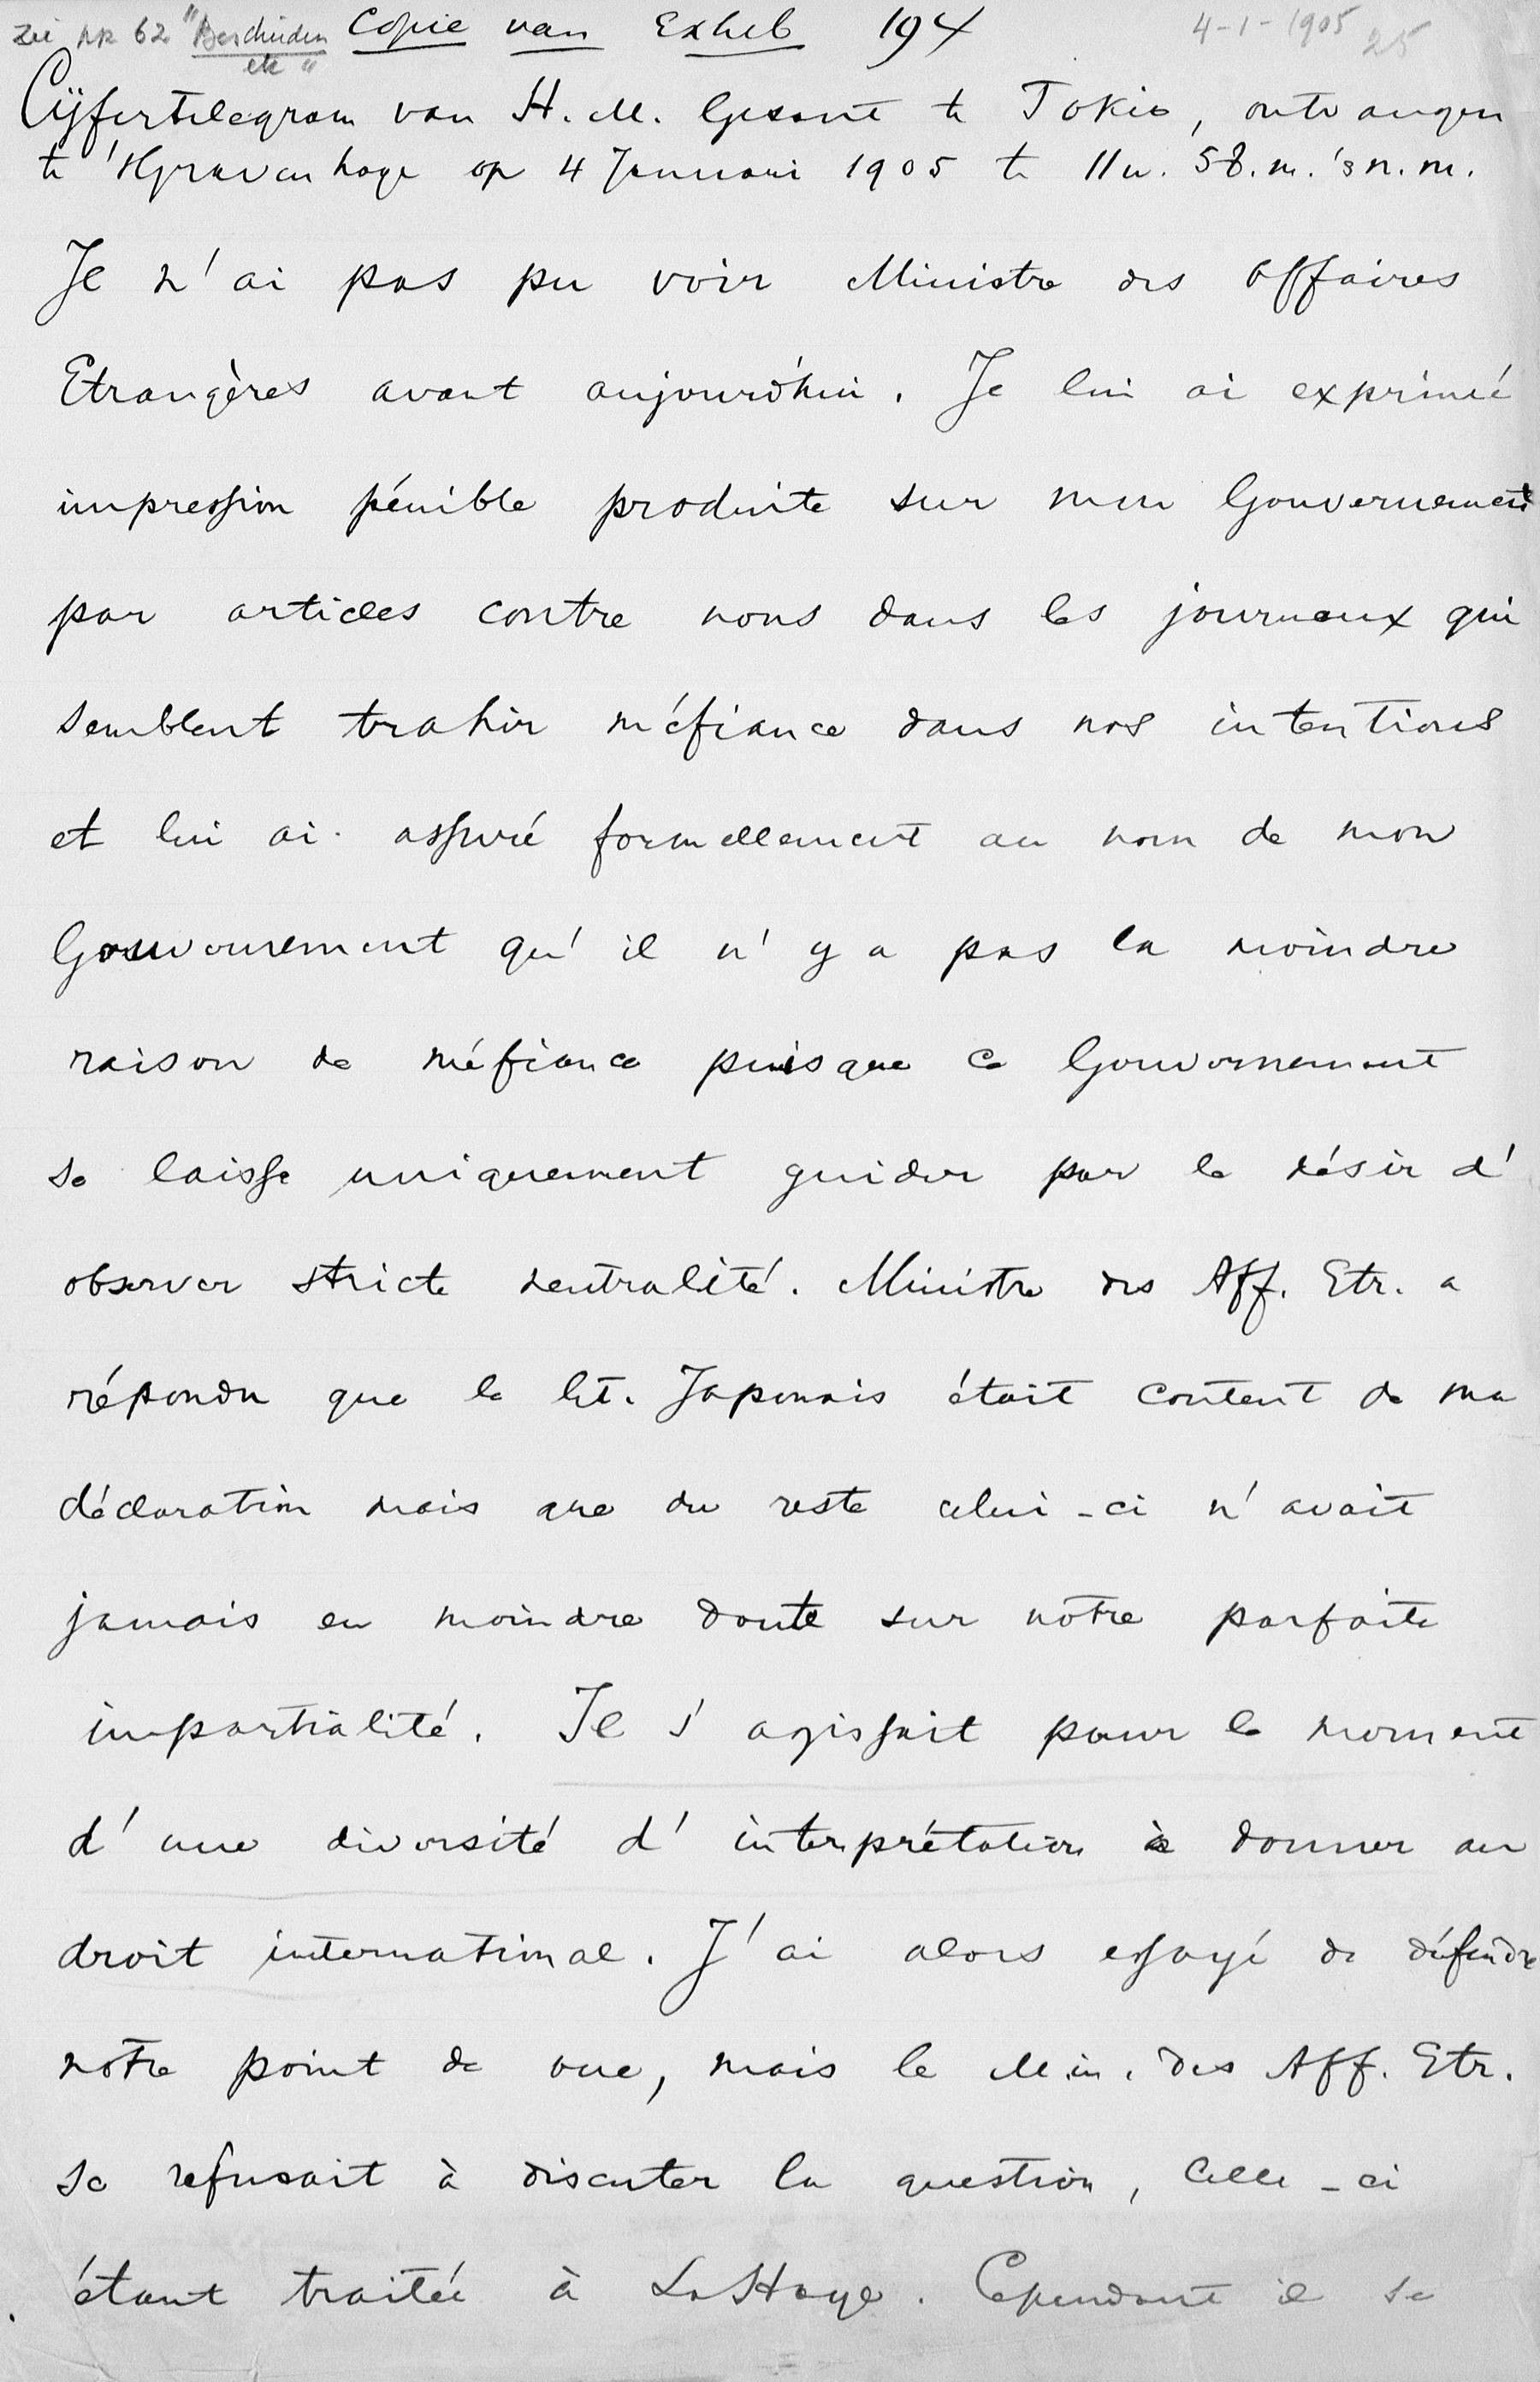 zie nr 62 "Bescheiden Copie van Exheb 194 4-1-1905 25
etc"
Cijfertelegram van H. M. Gezant te Tokio, ontvangen
te 's Gravenhage op 4 Januari 1905 te 11 u. 58. m. 's n. m.
Je n'ai pas pu voir Ministre des Affaires
Etrangères avant aujourd'hui. Je lui ai exprimé
impression pénible produite sur mon Gouvernement
par articles contre nous dans les journaux qui
semblent trahir méfiance dans nos intentions
et lui ai assuré formellement au nom de mon
Gouvernement qu'il n'y a pas la moindre
raison de méfiance puisque ce Gouvernement
se laisse uniquement guider par le désir d'
observer stricte neutralité. Ministre des Aff. Etr. a
répondu que le Gt. Japonais était content de ma
déclaration mais que du reste celui-ci n'avait
jamais eu moindre doute sur notre parfaite
impartialité. Il s'agissait pour le moment
d'une diversité d'interprétation à donner au
droit international. J'ai alors essayé de défendre
notre point de vue, mais le Min. des Aff. Etr.
se refusait à discuter la question, celle-ci
étant traitée à La Haye. Cependant il se